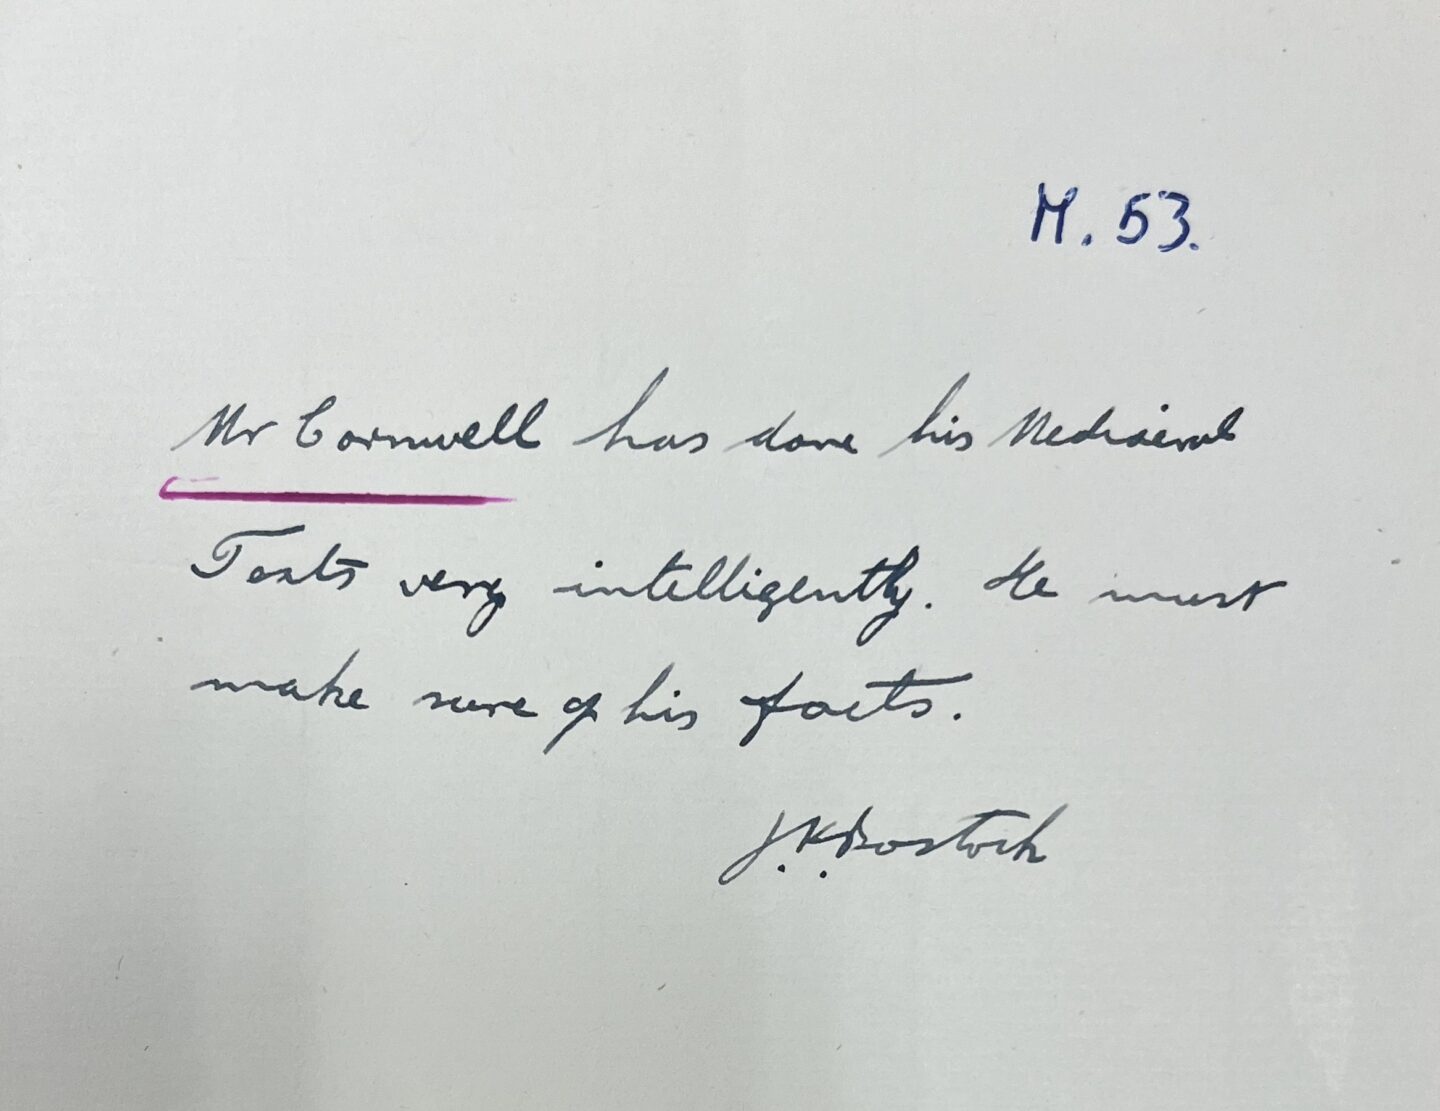 M. 53.
Mr Cornwell has done his Mediaeval
Texts very intelligently. He must
make sure of his facts.
J.K.Bostock